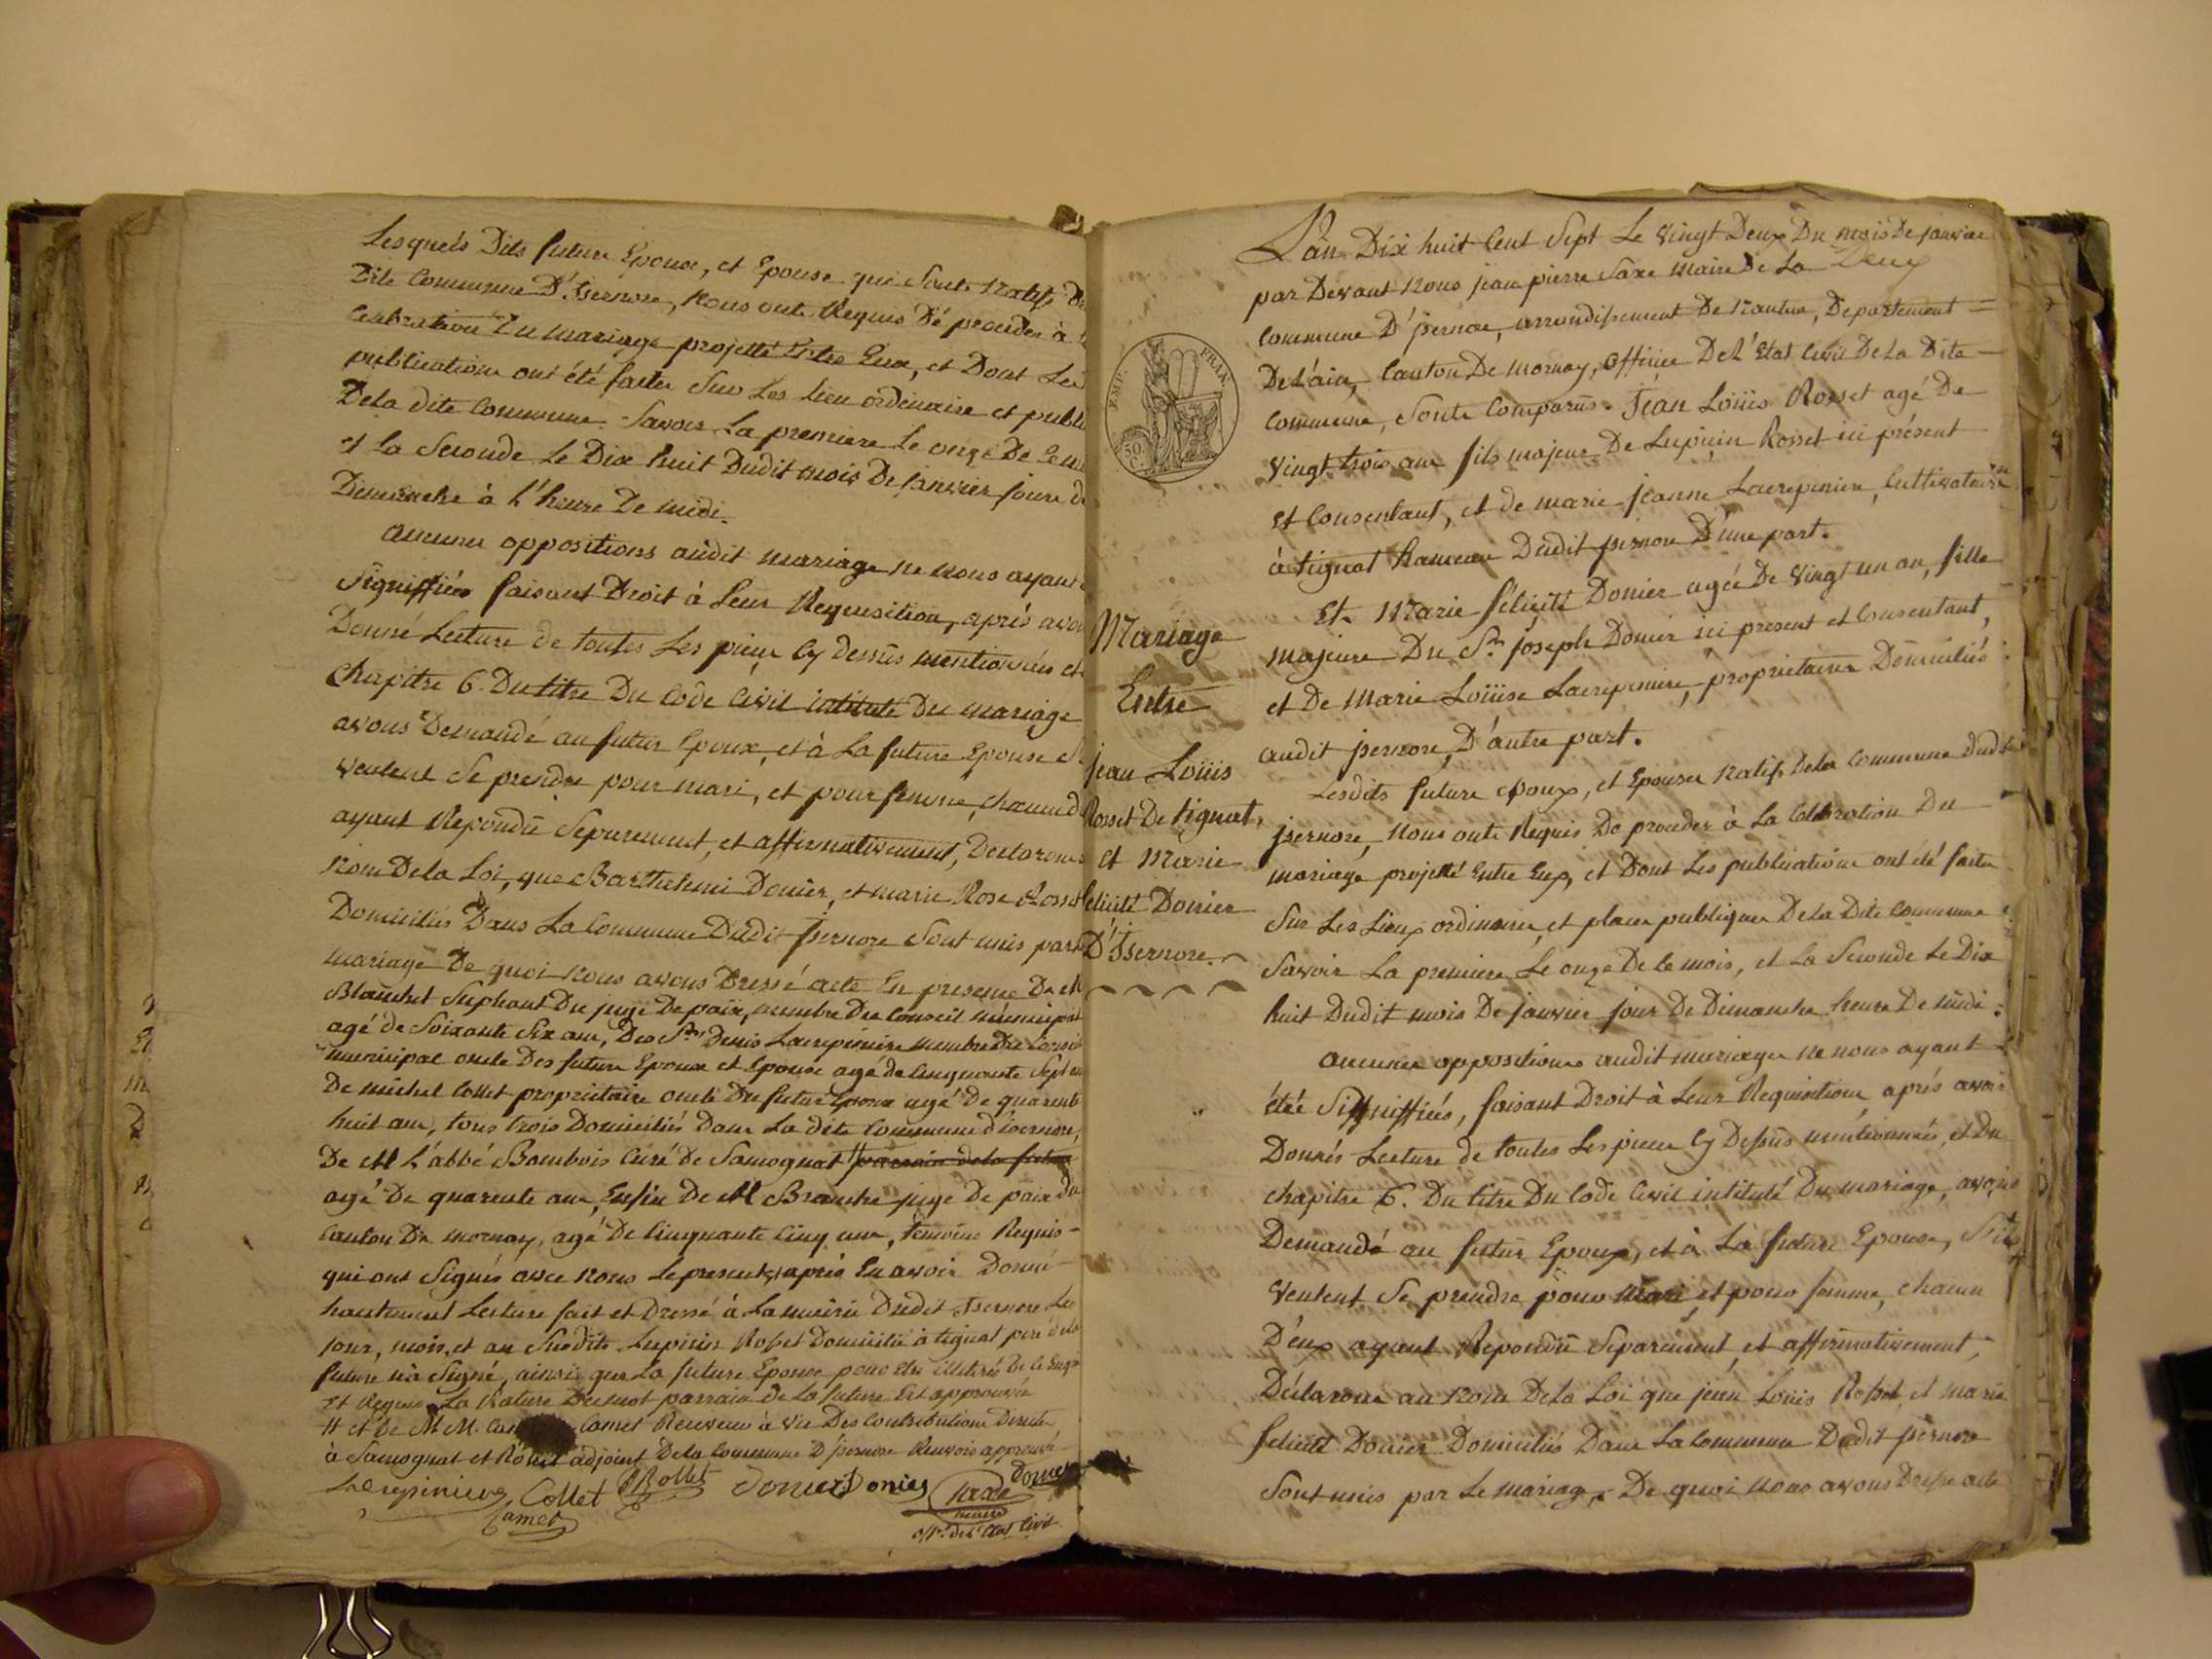 Lesquels Dits future Epoux, et Epouse qui Sont Natifs De
Dite Commune D'Isernore, Nous ont Requis De proceder à
Celebration Du mariage projetté Entre Eux, et Dont Les
publications ont été faites Sur Les lieu ordinaire et publi
De la dite Commune. Savoir La premiere Le onze De Ce
et La Seconde Le Dix huit Dudit mois De Janvier jours de
Dimanche à l'heure De midi.
aucunes oppositions audit mariage ne nous ayant
Signiffiées faisant Droit à Leur Requisition, après avoir
Donné Lecture de toutes Les pieces Cy dessus mentionnées et
Chapitre 6. Du titre Du Code Civil intitulé Du mariage
avons Demandé au futur Epoux, et à La future Epouse
veulent Se prendre pour mari, et pour femme, chacun d
ayant Repondu Separement, et affirmativement, Declarons
Nom De la Loi, que Barthelemi Donier, et marie Rose Rosset
Domiciliés Dans La Commune Dudit Isernore Sont unis par
mariage De quoi nous avons Dressé acte En presence De M
Blanchet Supleant Du juge De paix, membre Du Conseil municipal
agé de Soixante Six ans, Des Srs Denis Lacrepiniere membre du Conseil
municipal oncle Des future Epoux et Epouse agé de Cinquante Sept ans
De michel Collet proprietaire oncle Du futur Epoux agé De quarente
huit ans, tous trois Domiciliés dans La dite Commune d'isernore,
De M L'abbé Bombois Curé de Samognat # parrain de la future
agé De quarente ans, Enfin De M Branche juge De paix du
Canton De mornay, agé De Cinquante Cinq ans, temoins Requis =
qui ont Signés avec nous Le present, après En avoir Donné
hautement Lecture fait et Dressé à La mairie Dudit Isernore Les
jour, mois, et an Susdits. Lupicin Rosset Domicilié à tignat pere de la
future n'a Signé, ainsi que La future Epouse pour etre illitérés De Ce Enqs
et Requis. La Rature Du mot parrain de La future Est approuvée
# et De M M. Camet Receveur à vie Des Contributions Directes
à Samognat et Rollet adjoint De la Commune D'Isernore Renvois approuvé
Lacrepiniere Collet Rollet Donier Donier Saxe Donier
Camet maire
offr. de l'Etat Civil

Mariage
Entre
jean Loüis
Rosset De tignat,
et Marie
felicité Donier
D'Isernore.

EMP. FRAN.
50 C.

L'an Dix huit Cent Sept Le vingt Deux Du mois De janvier
par Devant Nous jean pierre Saxe maire De La
Commune D'isernore, arrondissement De Nantua, Departement =
De L'ain, Canton De mornay, officier De L'Etat Civil De La Dite
Commune, Sont Comparus. Jean Loüis Rosset agé De
vingt trois ans fils majeur De Lupicin Rosset ici présent
et Consentant, et de marie jeanne Lacrepiniere, Cultivateurs
à tignat hameau Dudit isernore D'une part.
Et Marie felicité Donier agée De vingt un an, fille
majeure Du Sr joseph Donier ici present et Consentant,
et De Marie Loüise Lacrepiniere, proprietaires Domiciliés
audit isernore, D'autre part.
Lesdits future epoux, et Epouses Natifs De la Commune Dudit
isernore, Nous ont Requis De proceder à La Célébration Du
mariage projetté Entre Eux, et Dont Les publications ont été faites
Sur Les Lieux ordinaires, et places publiques De la Dite Commune
Savoir La premiere Le onze De Ce mois, et La Seconde Le Dix
huit Dudit mois De janvier jour De Dimanche heure De midi.
aucunes oppositions audit mariage ne nous ayant
étée Signiffiées, faisant Droit à Leur Requisition, après avoir
Donnés Lecture de toutes Les pieces Cy Dessus mentionnées, et Du
chapitre 6. Du titre Du Code Civil intitulé Du mariage, avons
Demandé au futur Epoux, et à La future Epouse, S'ils
veulent Se prendre pour mari, et pour femme, chacun
D'eux ayant Repondu Separement, et affirmativement,
Déclarons au Nom De la Loi que jean Loüis Rosset, et marie
felicité Donier Domiciliés Dans La Commune Dudit isernore
Sont unis par Le mariage. De quoi Nous avons Dressé acte